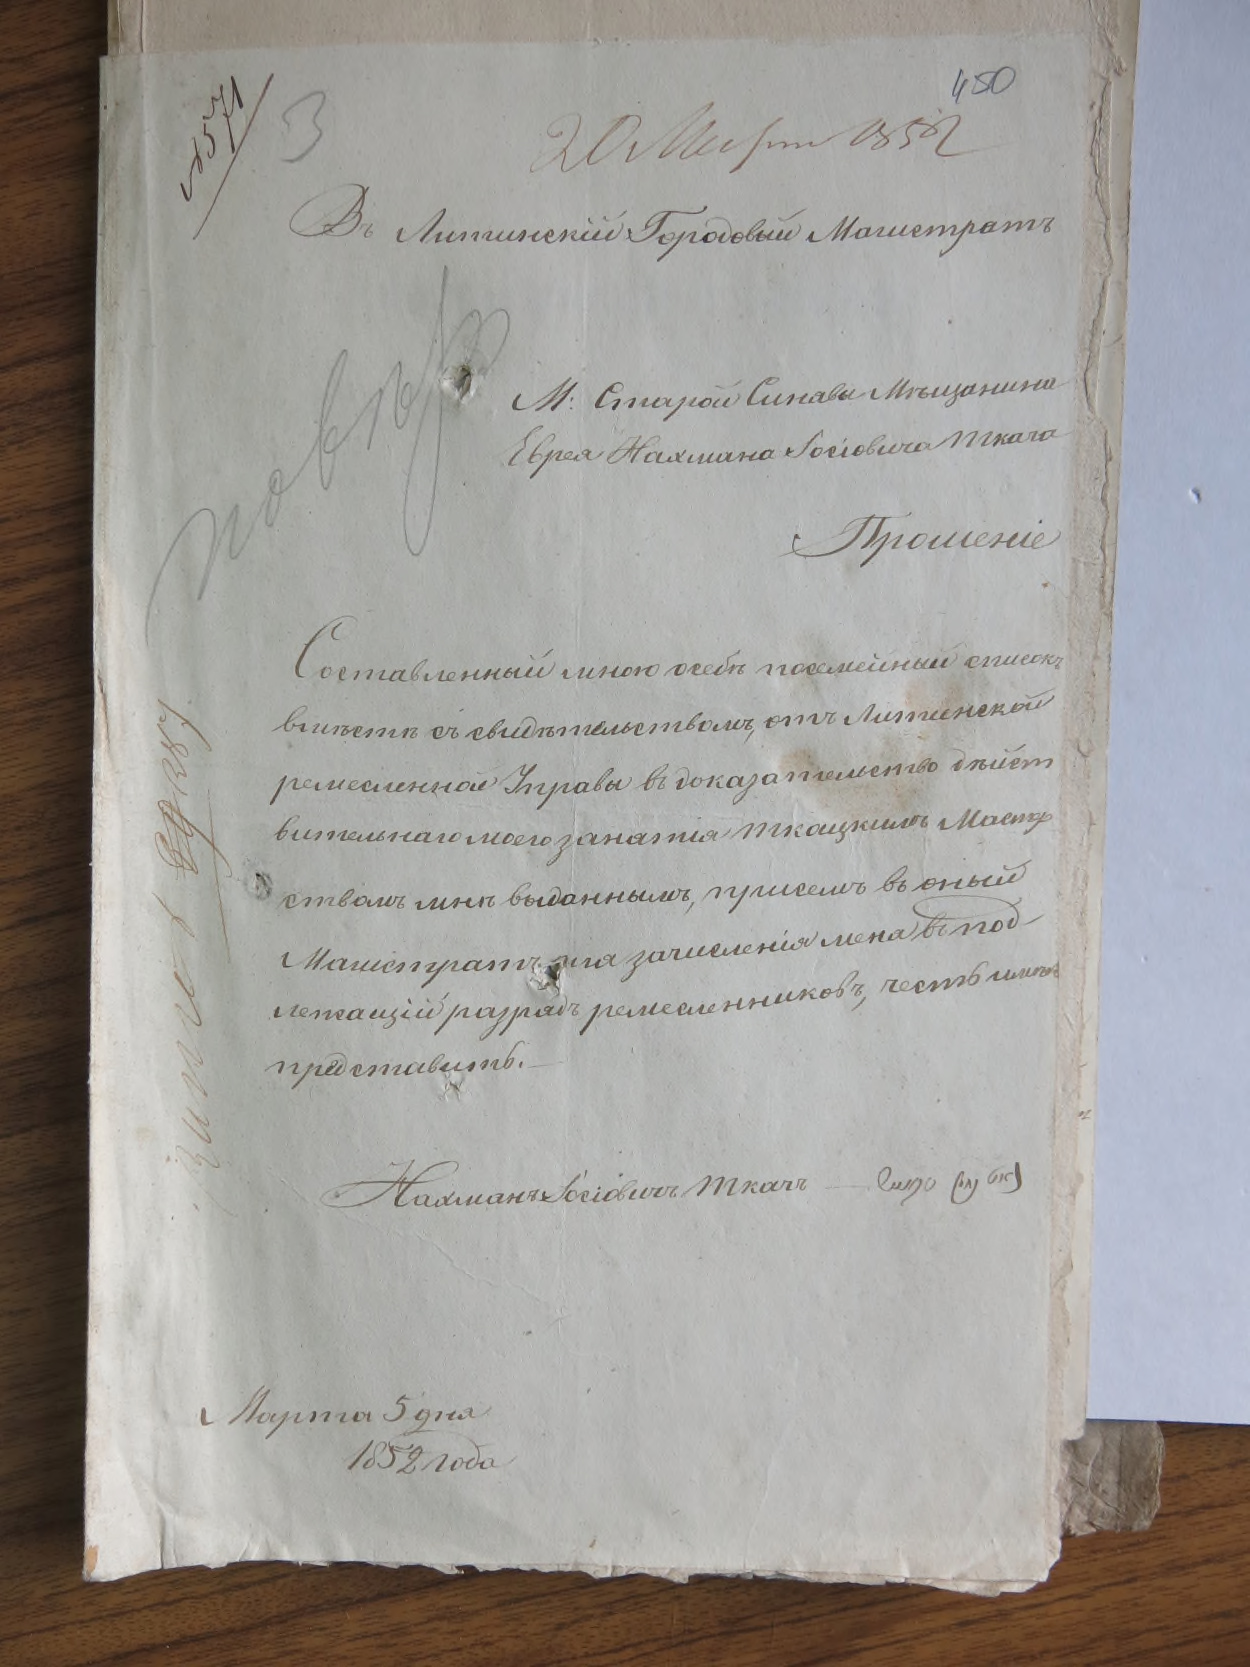 450
№ 571
3
20 Марта 1852
Въ Литинскій Городовый Магистратъ
М: Старой Синавы Мѣщанина
Еврея Нахмана Іосіовича Ткача
Прошеніе
Составленный мною о себѣ посемейный списокъ
вмѣстѣ съ свидѣтельствомъ, отъ Литинской
ремесленной Управы въ доказательство дѣйст
вительнаго моего занятія ткацкимъ Мастер
ствомъ мнѣ выданнымъ, присемъ въ оный
Магистратъ для зачисленія меня въ под-
лежащій разрядъ ремесленниковъ, честь имѣю
представить.
Нахманъ Іосіовичъ Ткачъ
Марта 5 дня
1852 года